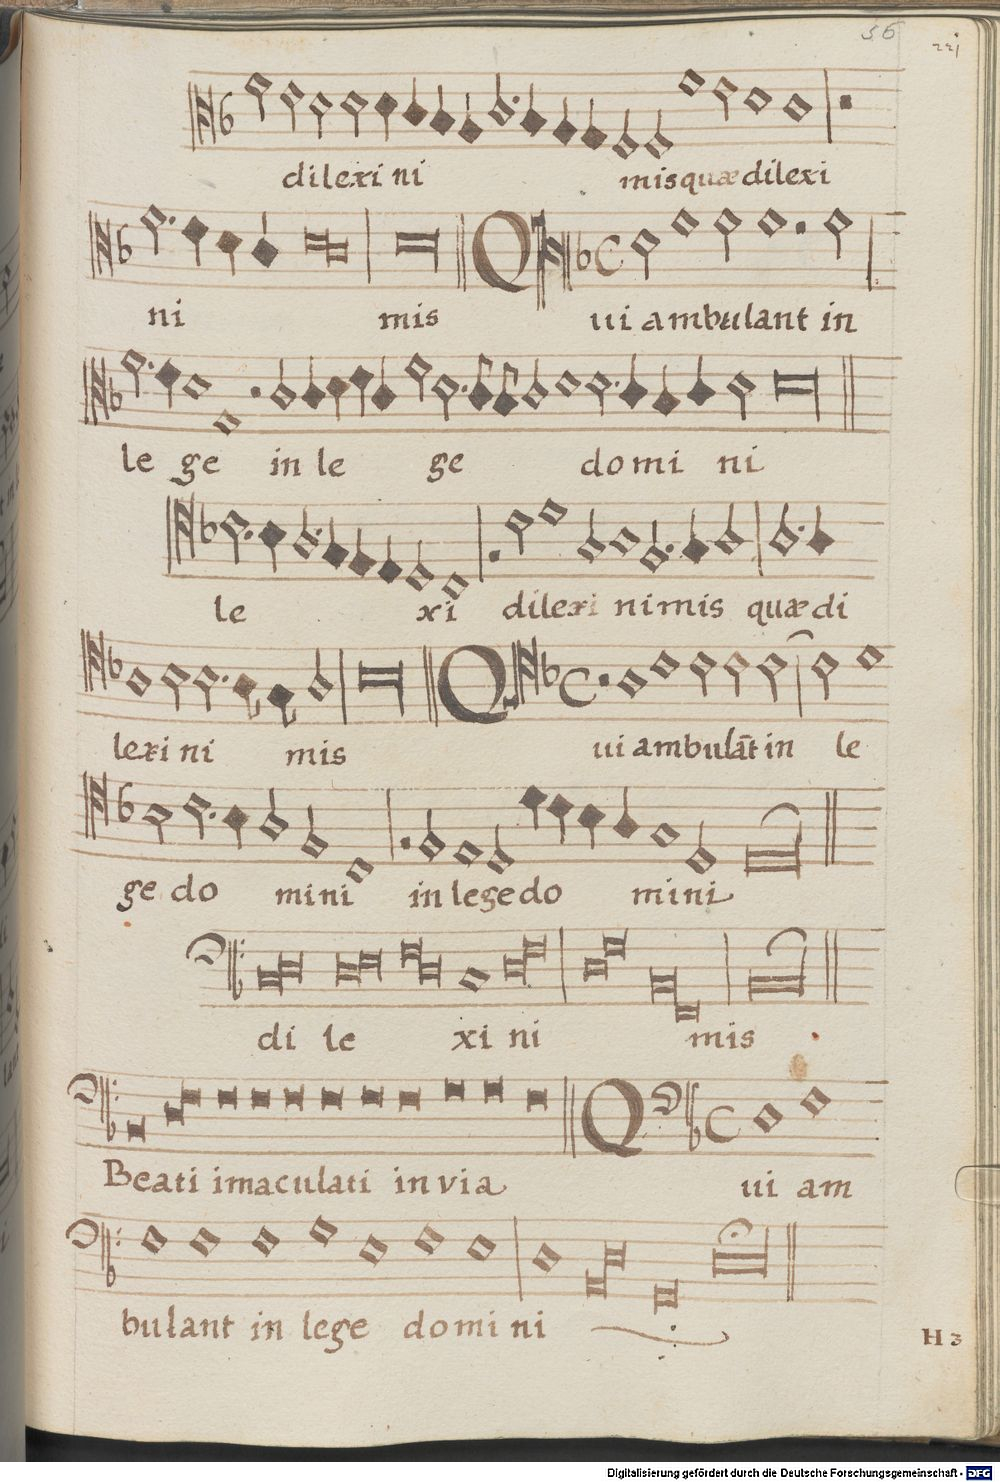 56
dilexi ni misquæ dilexi
ni mis Qui ambulant in
le ge in le ge domi ni
le xi dilexi nimis quædi
lexi ni mis Qui ambulāt in le
ge do mini in lege do mini
di le xi ni mis
Beati imaculati in via Qui am
bulant in lege domi ni
H 3
Digitalisierung gefördert durch die Deutsche Forschungsgemeinschaft - DFG